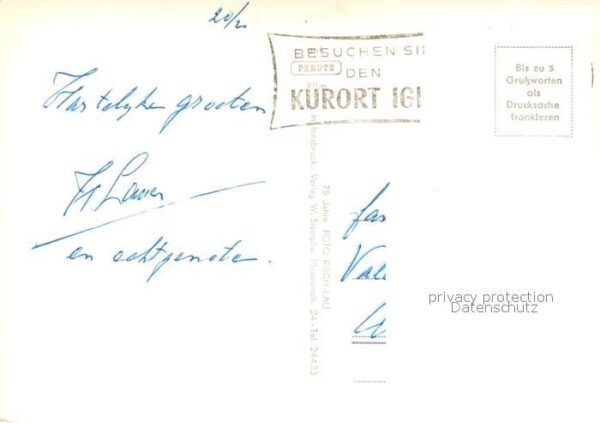 20/2
BESUCHEN SI
PERUTZ
DEN
KURORT IGL
Bis zu 5
Grußworten
als
Drucksache
frankieren
Hartelijke groeten
en echtgenote.
75 Jahre FOTO RISCH-LAU
Innsbruck: Verlag W. Stempfle, Museumstr. 24 - Tel. 24433
fam
privacy protection
Datenschutz